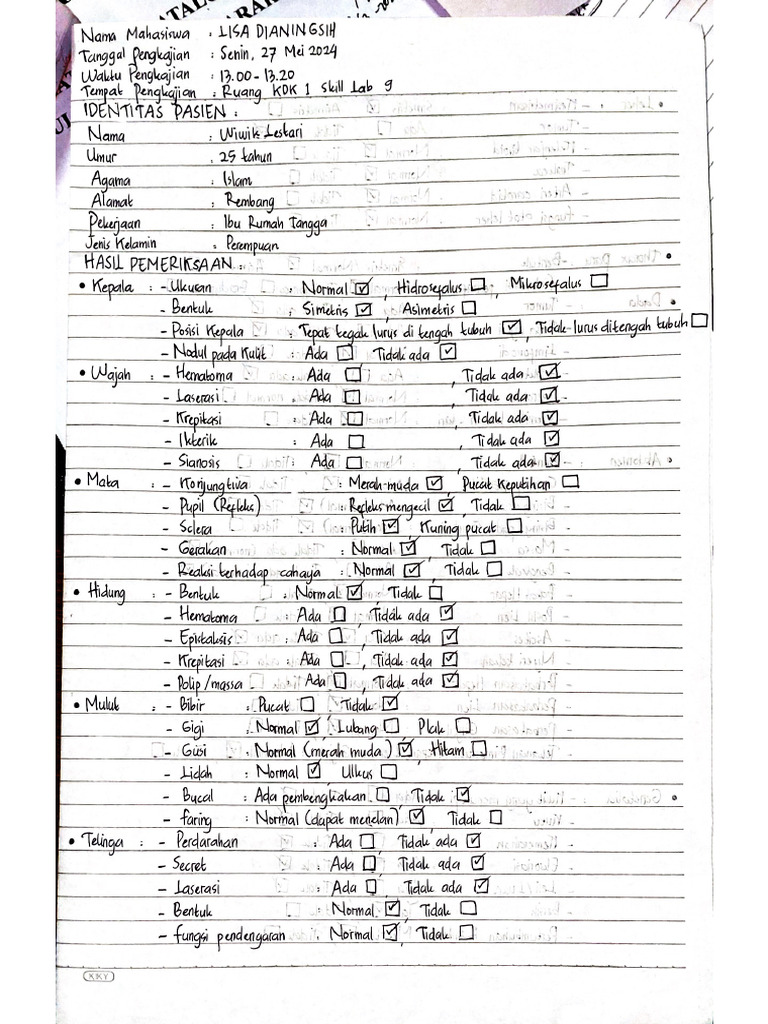 Nama Mahasiswa : LISA DIANINGSIH
Tanggal Pengkajian : Senin, 27 Mei 2024
Waktu Pengkajian : 13.00 - 13.20
Tempat Pengkajian : Ruang KDK 1 Skill Lab 9
IDENTITAS PASIEN :
Nama : Wiwik Lestari
Umur : 25 tahun
Agama : Islam
Alamat : Rembang
Pekerjaan : Ibu Rumah Tangga
Jenis Kelamin : Perempuan
HASIL PEMERIKSAAN :
• Kepala : - Ukuran : Normal ☑, Hidrosefalus ☐, Mikrosefalus ☐
- Bentuk : Simetris ☑, Asimetris ☐
- Posisi Kepala : Tepat tegak lurus di tengah tubuh ☑, Tidak lurus ditengah tubuh ☐
- Nodul pada Kulit : Ada ☐ Tidak ada ☑
• Wajah : - Hematoma : Ada ☐, Tidak ada ☑
- Laserasi : Ada ☐, Tidak ada ☑
- Krepitasi : Ada ☐, Tidak ada ☑
- Ikterik : Ada ☐, Tidak ada ☑
- Sianosis : Ada ☐, Tidak ada ☑
• Mata : - Konjungtiva : Merah-muda ☑, Pucat Keputihan ☐
- Pupil (Refleks) : Refleks mengecil ☑, Tidak ☐
- Sclera : Putih ☑, Kuning pucat ☐
- Gerakan : Normal ☑, Tidak ☐
- Reaksi terhadap cahaya : Normal ☑, Tidak ☐
• Hidung : - Bentuk : Normal ☑, Tidak ☐
- Hematoma : Ada ☐, Tidak ada ☑
- Epistaksis : Ada ☐, Tidak ada ☑
- Krepitasi : Ada ☐, Tidak ada ☑
- Polip/massa : Ada ☐, Tidak ada ☑
• Mulut : - Bibir : Pucat ☐, Tidak ☑
- Gigi : Normal ☑, Lubang ☐ Plak ☐
- Gusi : Normal (merah muda) ☑, Hitam ☐
- Lidah : Normal ☑ Ulkus ☐
- Bucal : Ada pembengkakan ☐ Tidak ☑
- faring : Normal (dapat menelan) ☑, Tidak ☐
• Telinga : - Perdarahan : Ada ☐, Tidak ada ☑
- Secret : Ada ☐, Tidak ada ☑
- Laserasi : Ada ☐, Tidak ada ☑
- Bentuk : Normal ☑, Tidak ☐
- fungsi pendengaran : Normal ☑, Tidak ☐
KKY